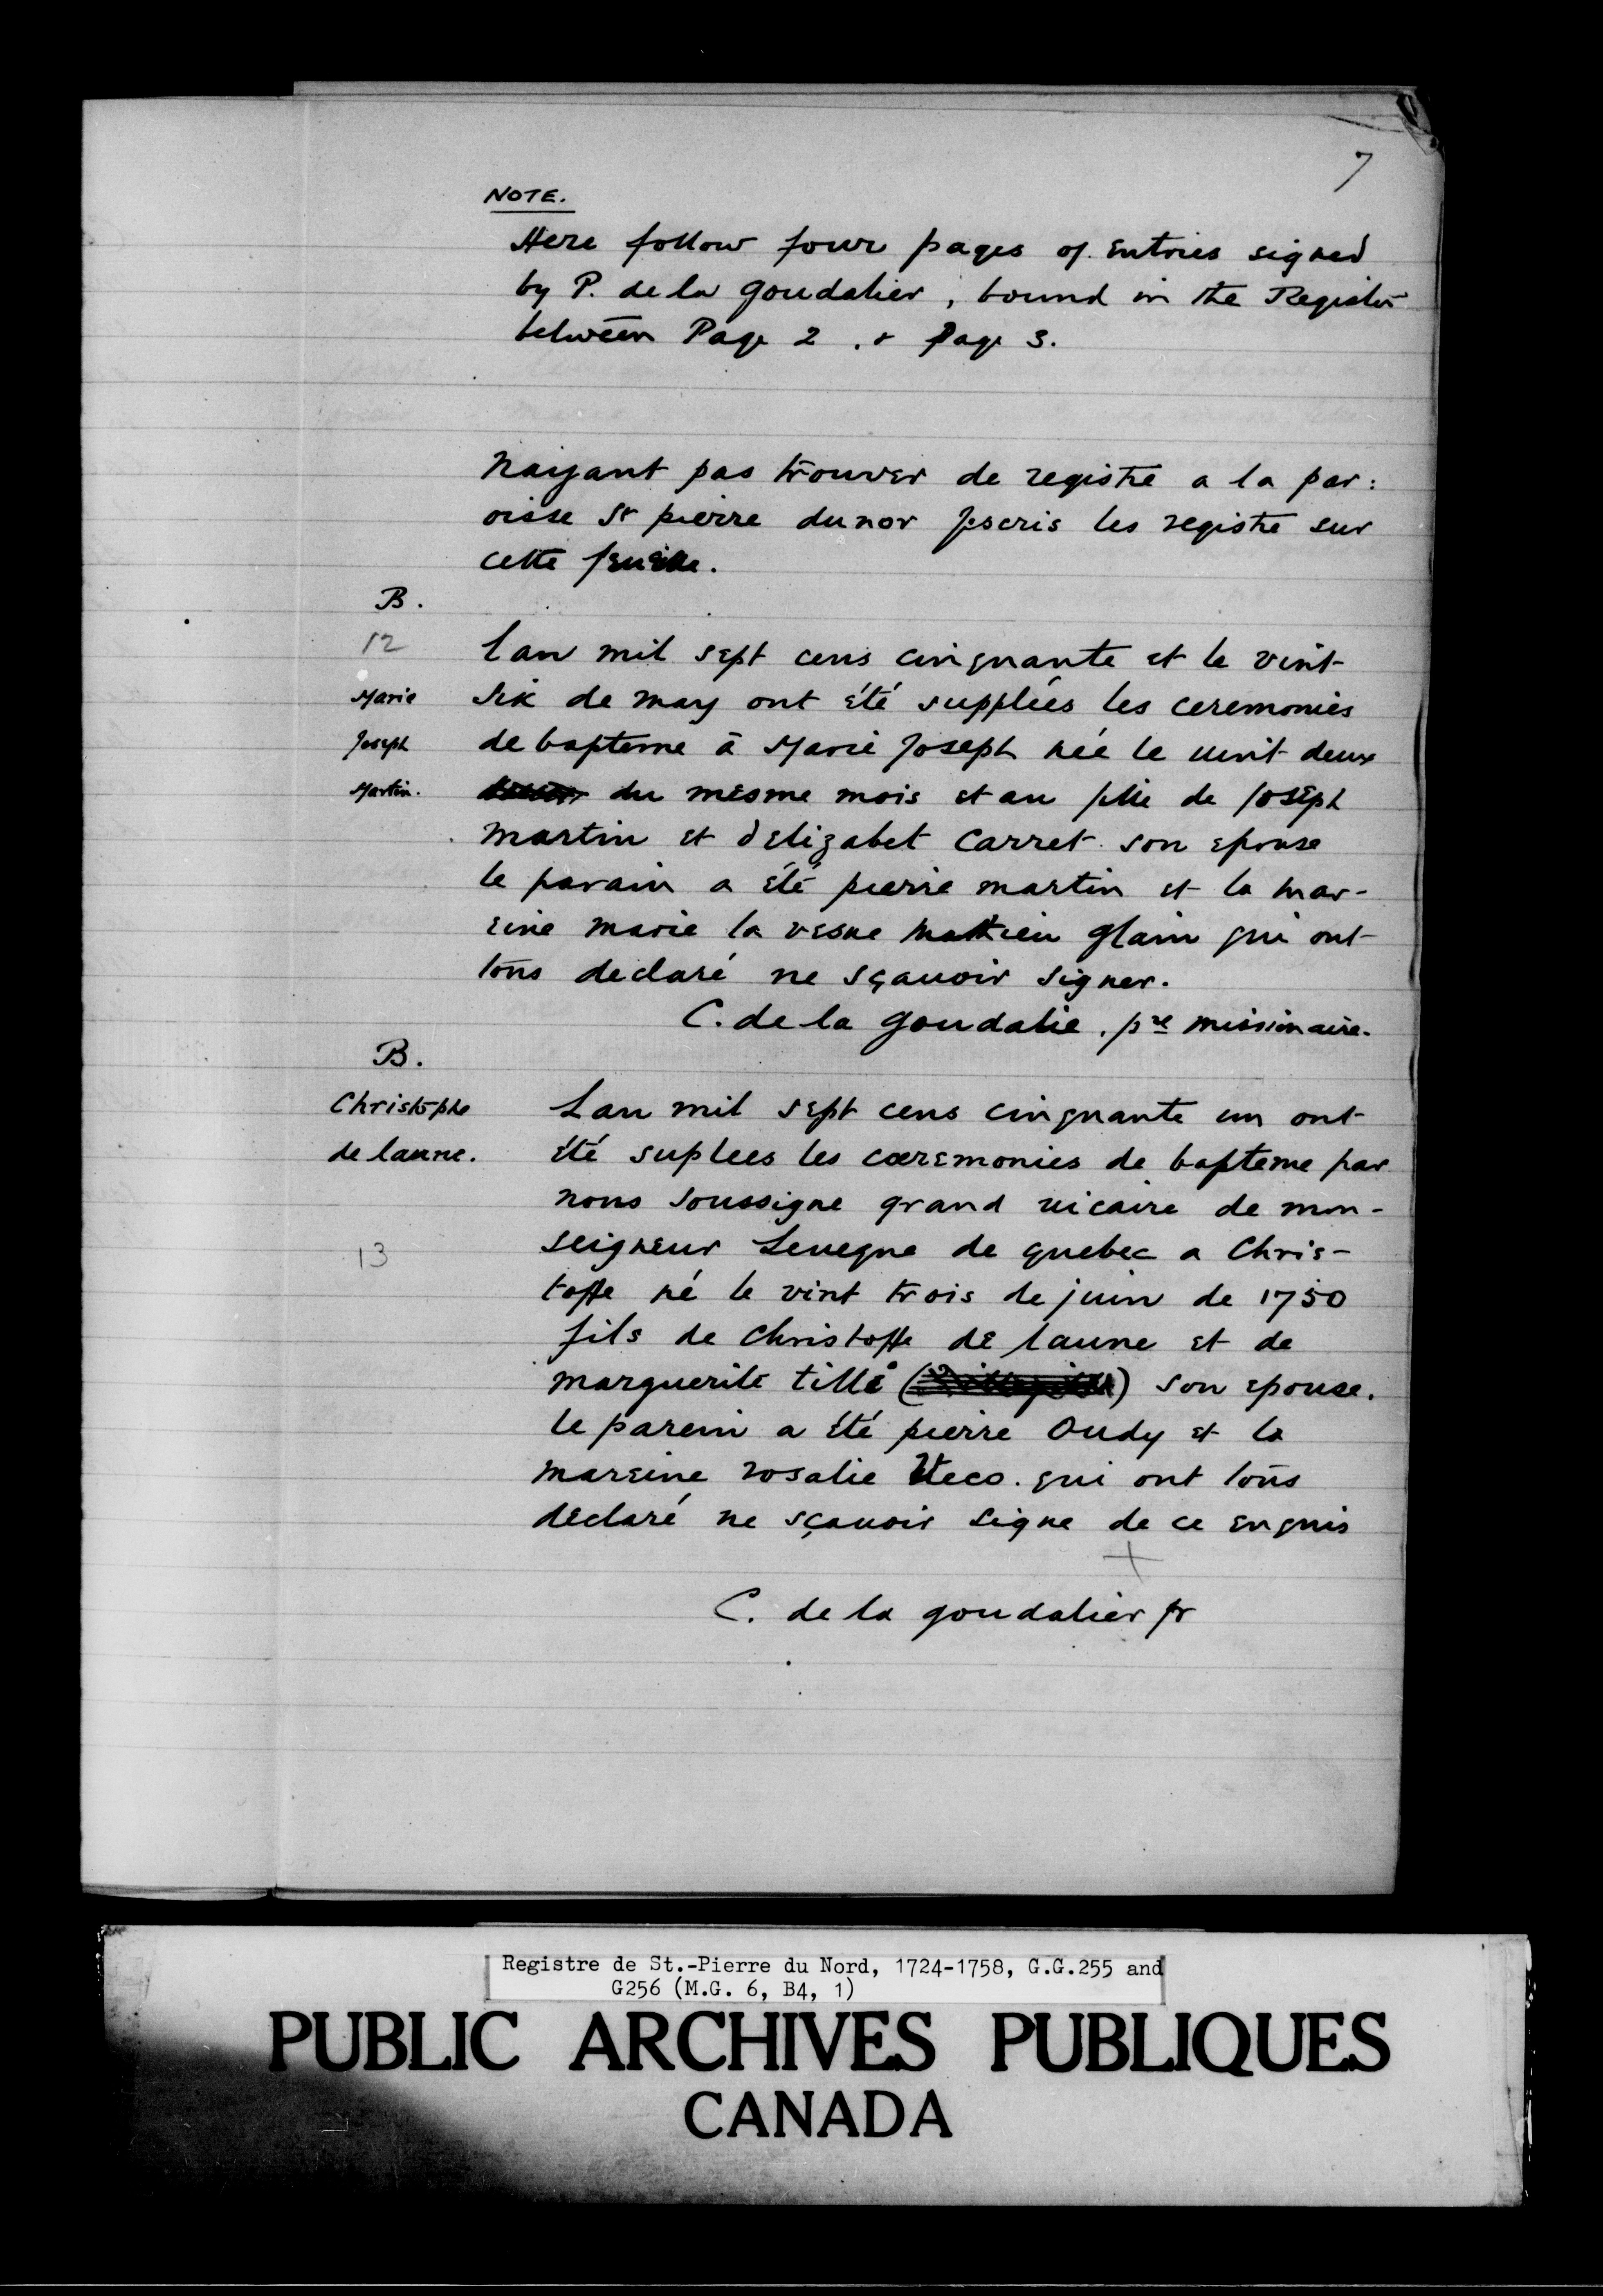 7
NOTE.
Here follow four pages of entries signed
by P. de la goudalier, bound in the Register
between Page 2 . & Page 3.
Nayant pas trouver de registre a la par:
oisse St pierre dunor Jescris les registre sur
cette feuille.
B.
12
Lan mil sept cens cinquante et le vint
Marie
six de may ont été suppléés les ceremonies
Joseph
de bapteme à Marie Joseph née le uint deux
Martin.
du mesme mois et an fille de Joseph
martin et d'elizabet Carret son epouse
le parain a été pierre martin et la mar-
eine marie la vesve mathieu glain qui ont
tous declaré ne sçauoir signer.
C. de la goudalie, pre missionaire.
B.
Christophe
Lan mil sept cens cinquante un ont
de laune.
été suplees les cœremonies de bapteme par
nous soussigne grand uicaire de mon-
13
seigneur Leueque de quebec a Chris-
toffe né le vint trois de juin de 1750
fils de Christoffe de laune et de
marguerite tillé () son epouse.
le parein a été pierre Oudy et la
mareine rosalie qui ont tous
declaré ne sçauoir signe de ce enquis
+
C. de la goudalier pr
Registre de St.-Pierre du Nord, 1724-1758, G.G.255 and
G256 (M.G. 6, B4, 1)
PUBLIC ARCHIVES PUBLIQUES
CANADA